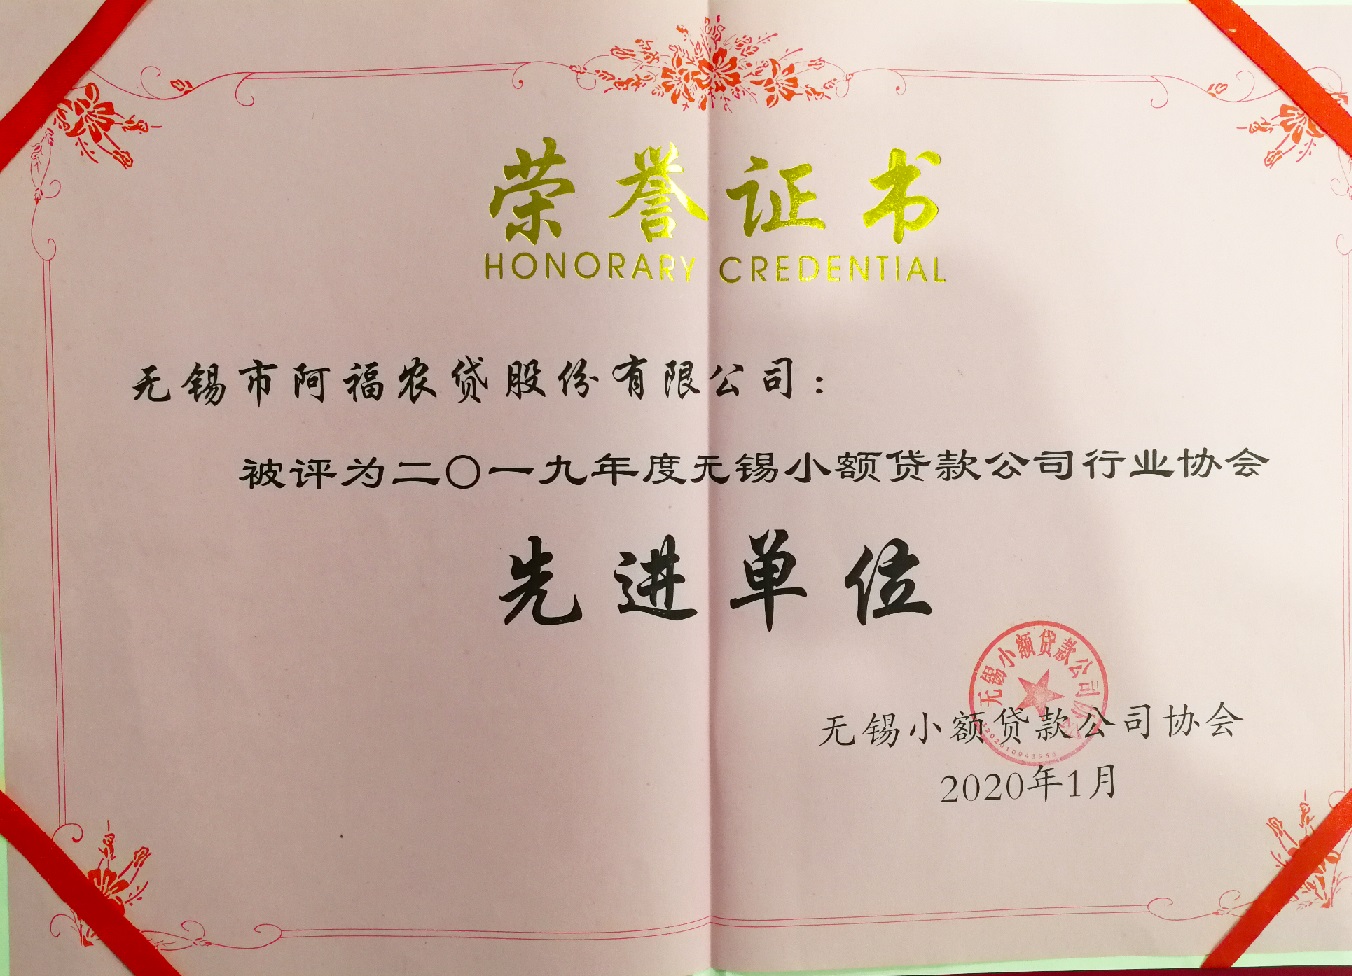 荣誉证书
HONORARY CREDENTIAL
无锡市阿福农贷股份有限公司：
被评为二〇一九年度无锡小额贷款公司行业协会
先进单位
无锡小额贷款公司协会
无锡小额贷款公司协会
2020年1月